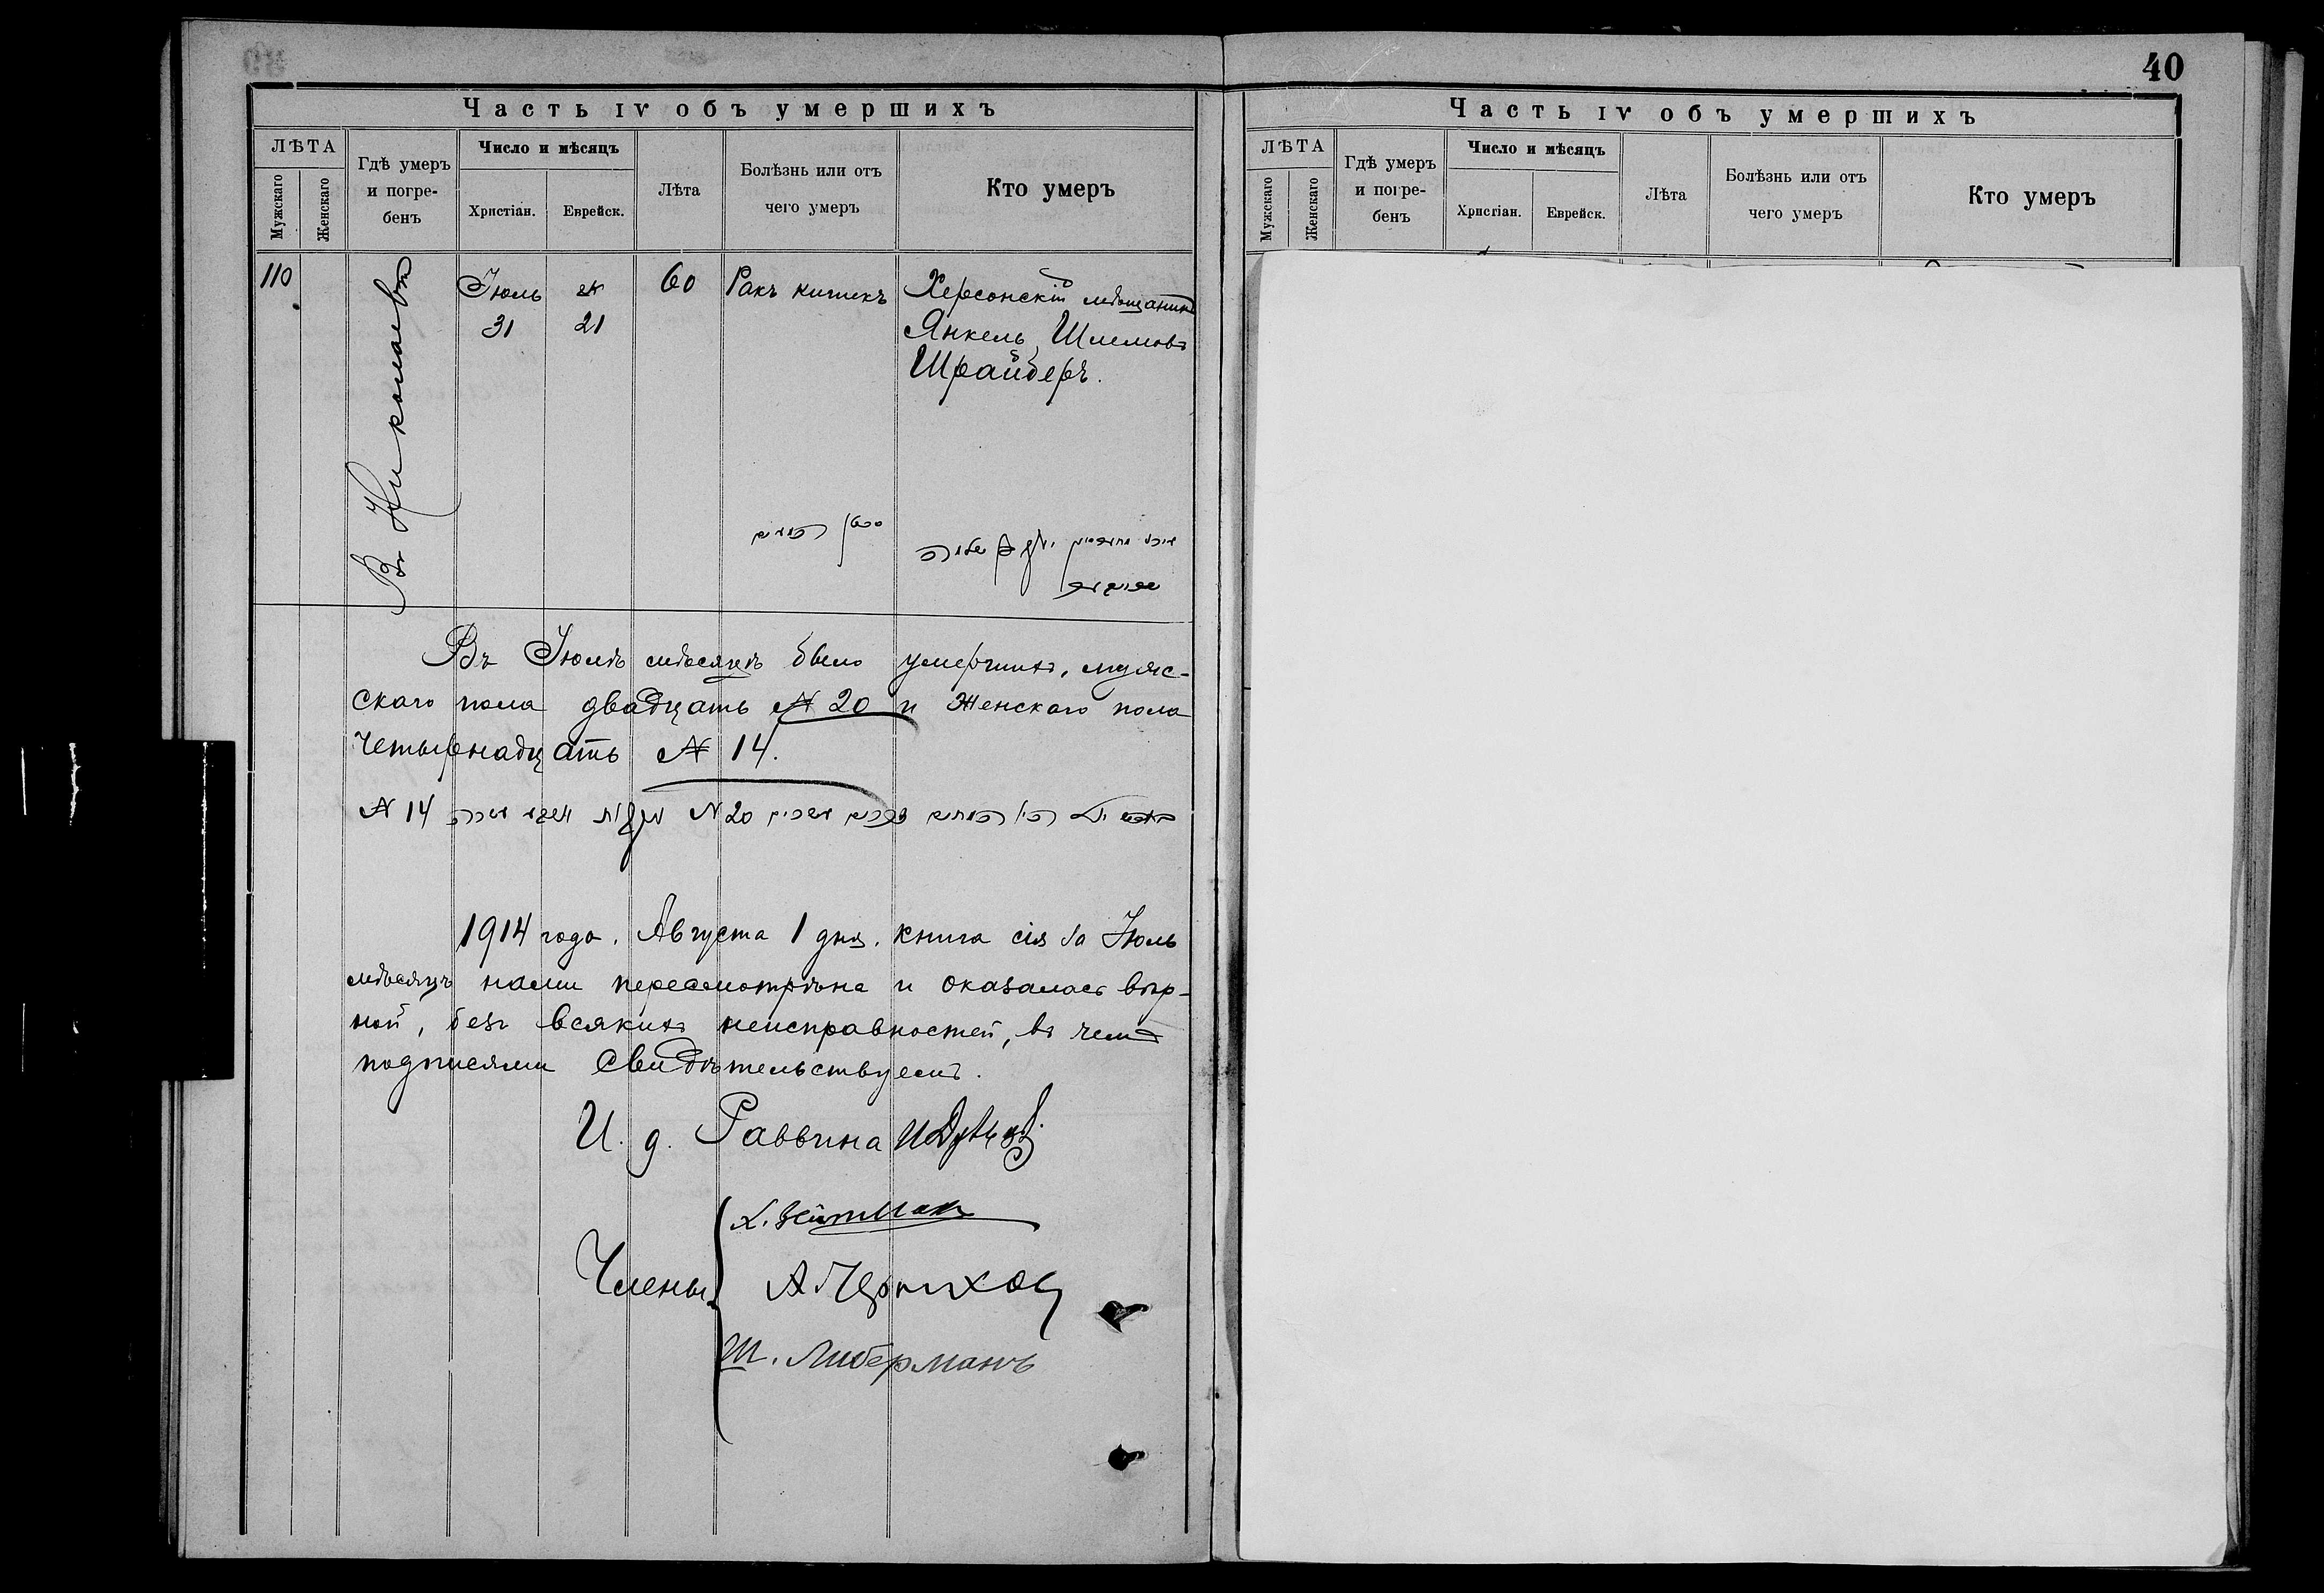 40
Часть IV объ умершихъ
ЛѢТА
Мужскаго
Женскаго
Гдѣ умеръ и погре-бенъ
Число и мѣсяцъ
Христіан.
Еврейск.
Лѣта
Болѣзнь или отъ чего умеръ
Кто умеръ
110
Въ Николаевѣ
Іюль
31
21
60
Ракъ кишекъ
Херсонскій мѣщанинъ
Янкель Шлемовъ
Шрайберъ.
Въ Іюлѣ мѣсяцѣ было умершихъ, мужс-
скаго пола двадцать № 20 и Женскаго пола
Четырнадцать № 14.
№ 14 № 20
1914 года. Августа 1 дня. книга сія за Іюль
мѣсяцъ нами пересмотрѣна и оказалась вѣр-
ной, безъ всякихъ неисправностей, въ чемъ
подписями свидѣтельствуемъ.
И. д. Раввина
Члены
А. Чернихов
Ш. Либерманъ
Часть IV объ умершихъ
ЛѢТА
Мужскаго
Женскаго
Гдѣ умеръ и погре-бенъ
Число и мѣсяцъ
Христіан.
Еврейск.
Лѣта
Болѣзнь или отъ чего умеръ
Кто умеръ